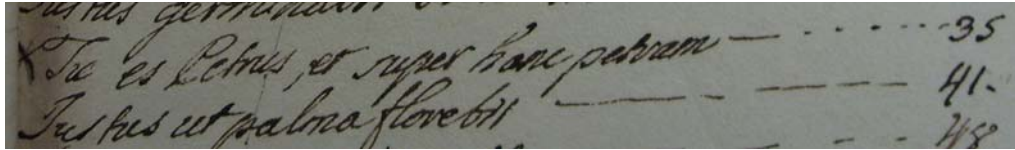 Justus germinabit
X Tu es Petrus, et super hanc petram — - - - - - 35
Justus ut palma florebit — - - — — - - 41.
48